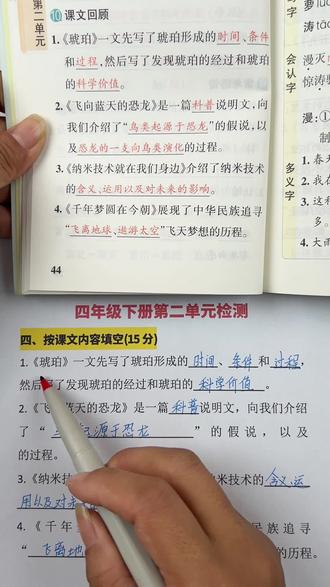 第二单元
10 课文回顾
1.《琥珀》一文先写了琥珀形成的时间、条件
和过程,然后写了发现琥珀的经过和琥珀
的科学价值。
2.《飞向蓝天的恐龙》是一篇科普说明文,向
我们介绍了“鸟类起源于恐龙”的假说,以
及恐龙的一支向鸟类演化的过程。
3.《纳米技术就在我们身边》介绍了纳米技术
的含义、运用以及对未来的影响。
4.《千年梦圆在今朝》展现了中华民族追寻
“飞离地球、遨游太空”飞天梦想的历程。
44
字
会认字
多义字
漫灭
惊涛
漫:①
制
1. 春天
2. 我在
3. 这种
4. 大雨
四年级下册第二单元检测
四、按课文内容填空(15分)
1.《琥珀》一文先写了琥珀形成的 时间、条件 和 过程,
然后写了发现琥珀的经过和琥珀的 科学价值 。
2.《飞 蓝天的恐龙》是一篇 科普 说明文,向我们介绍
了“ 起源于恐龙 ”的假说,以及
的过程。
3.《纳米技 米技术的 含义、运
用以及对
4.《千年 民族追寻
“飞离地 想的历程。